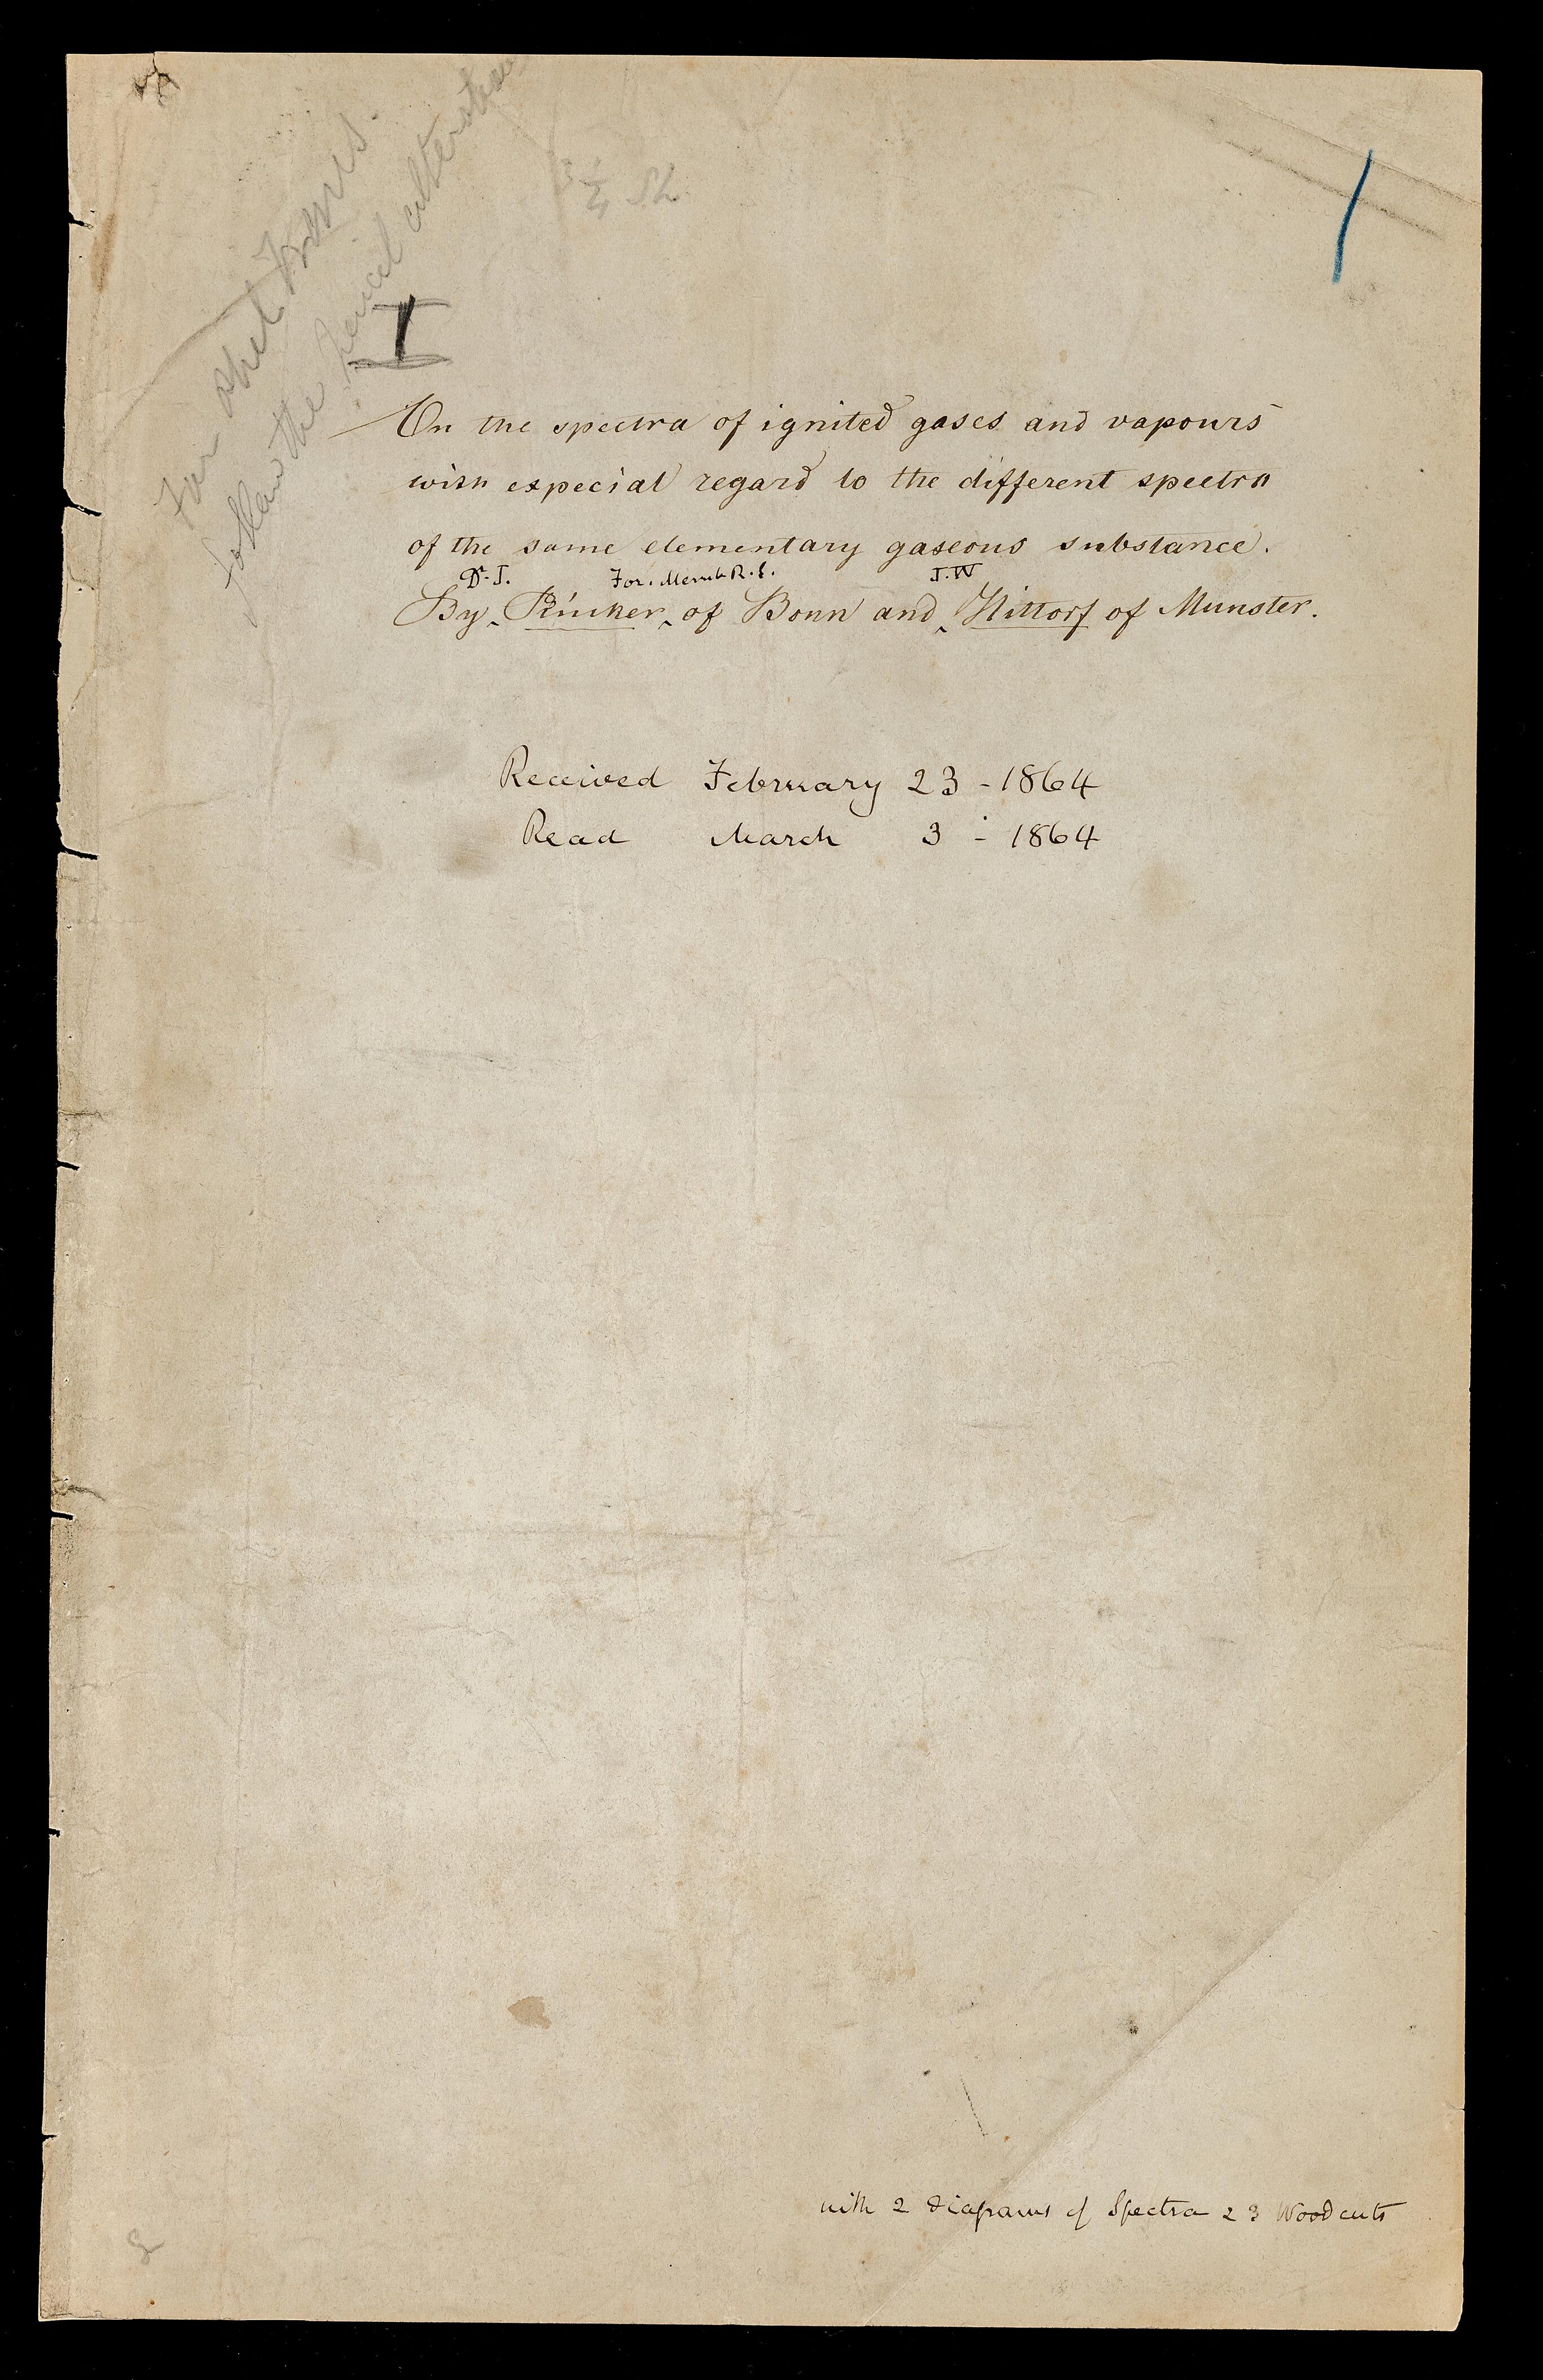 For
follow the pencil alterations
I
On the spectra of ignited gases and vapours
with especial regard to the different spectra
of the same elementary gaseous substance.
Dr. J. For. Memb R.S. J.W
By Plücker of Bonn and Hittorf of Munster.
Received February 23 - 1864
Read March 3 - 1864
with 2 diagrams of Spectra & 3 Woodcuts